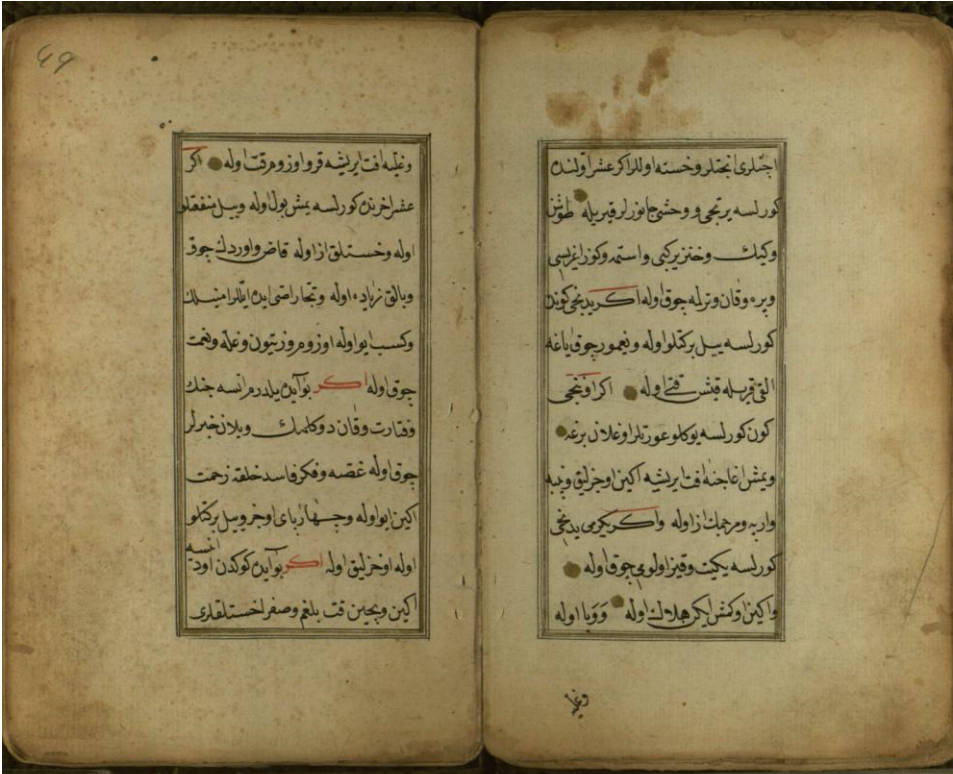 اچلری انجتلر و خسته اوللر اکر عشر اولنده
کورلسه یرتجی و وحشی جانورلر قیریله طوشن
وکیک وخنزیر کبی واستمه وکوز اغریسی
ویره وقان وترلمه چوق اوله اکر یدنجی کونده
کورلسه ییل برکتلو اوله ویغمور چوق یاغه
التی قریله قیش قتی اوله اکر اونجی
کون کورلسه یوکلو عورتلر اوغلان برغه
ویمش اغاجنه افت ایریشه اکین اوجزلیق وپنبه
واربه ومرجمك از اوله واکر یکرمی یدنجی
کورلسه یکیت وقیز اولومی چوق اوله
واکین اوکمش ایکن هلاك اوله ووبا اوله
وغله
49
وغلیه افت ایریشه قرو اوزوم قت اوله اکر
عشر اخرنده کورلسه یمش بول اوله وییل منفعتلو
اوله وخستلق از اوله قاض واوردك چوق
وبالق زیاده اوله وتجار اضی ایده ایللر امینلك
وکسب ایو اوله اوزوم وزیتون وغله ونعمت
چوق اوله اکر بوآیده یلدرم انسه جنك
وغارت وقان دوکلمك ویلان خبرلر
چوق اوله غصه وفکر فاسد خلقه زحمت
اکین ایو اوله وجهارپای اوجز وییل برکتلو
اوله اوخزلیق اوله اکر بوآیده کوکدن اود انسه
اکین وبچین قت بلغم وصفرا خستلقلری